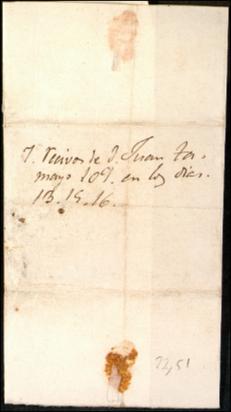 7. Recivos de D. Juan Ta-
mayo 109. en los dias.
13. 15. 16.
22,51